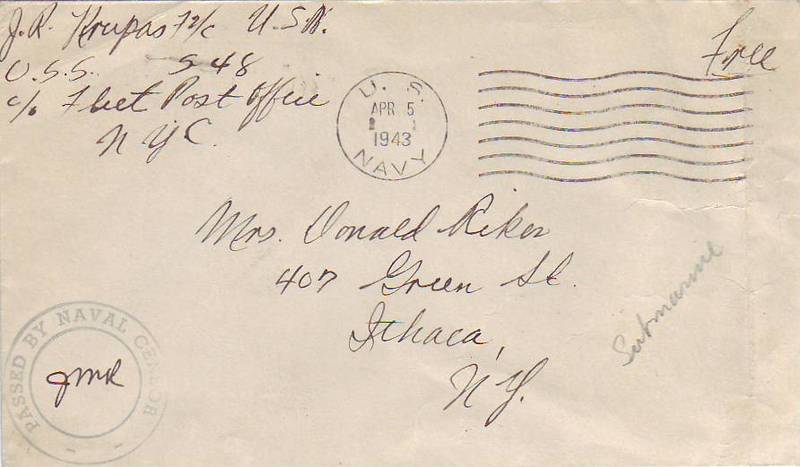 J. R. Krupas F2/c U.S.N.
U.S.S. S 48
c/o Fleet Post Office
N Y C.
Free
U. S.
APR 5
1943
NAVY
Mrs. Donald Riker
407 Green St.
Ithaca,
N.Y.
Submarine
PASSED BY NAVAL CENSOR
JMR